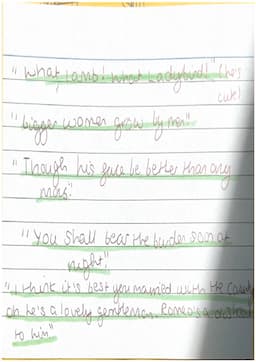 "What, lamb! What Ladybird!" (he's
cute)
"bigger women grow by men"
"Though his face be better than any
mans"
"You shall bear the burden soon at
night"
"I think it's best you married with the County
oh he's a lovely gentleman. Romeo's a dishclout
to him"